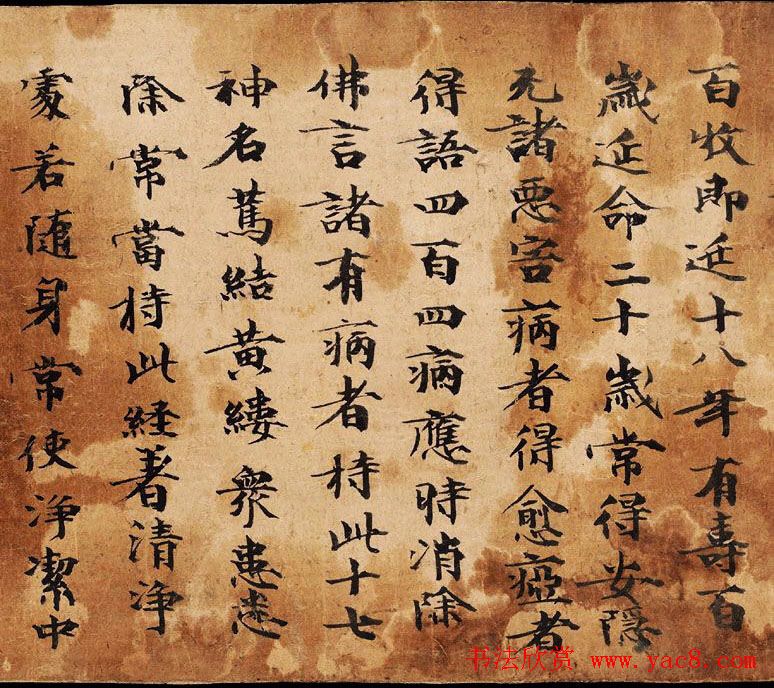 百收即延十八年有壽百
歲延命二十歲常得安隱
无諸惡害病者得愈瘂者
得語四百四病應時消除
佛言諸有病者持此十七
神名為結黃縷衆患悉
除常當持此経著清淨
處若随身常使淨潔中
书法欣赏 www.yac8.com